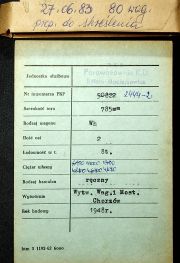 27.06.83 80 wag.
prop. do skreślenia
Jednostka służbowa
Parowozownia K.D.
Nr inwentarza PKP 50822 2444-2
Szerokość toru 785mm
Rodzaj wagonu Wh
Ilość osi 2
Ładowność w t. 8t.
Ciężar własny
Rodzaj hamulca ręczny
Wytwórnia Wytw. Wag.i Most.
Chorzów
Rok budowy 1948r.